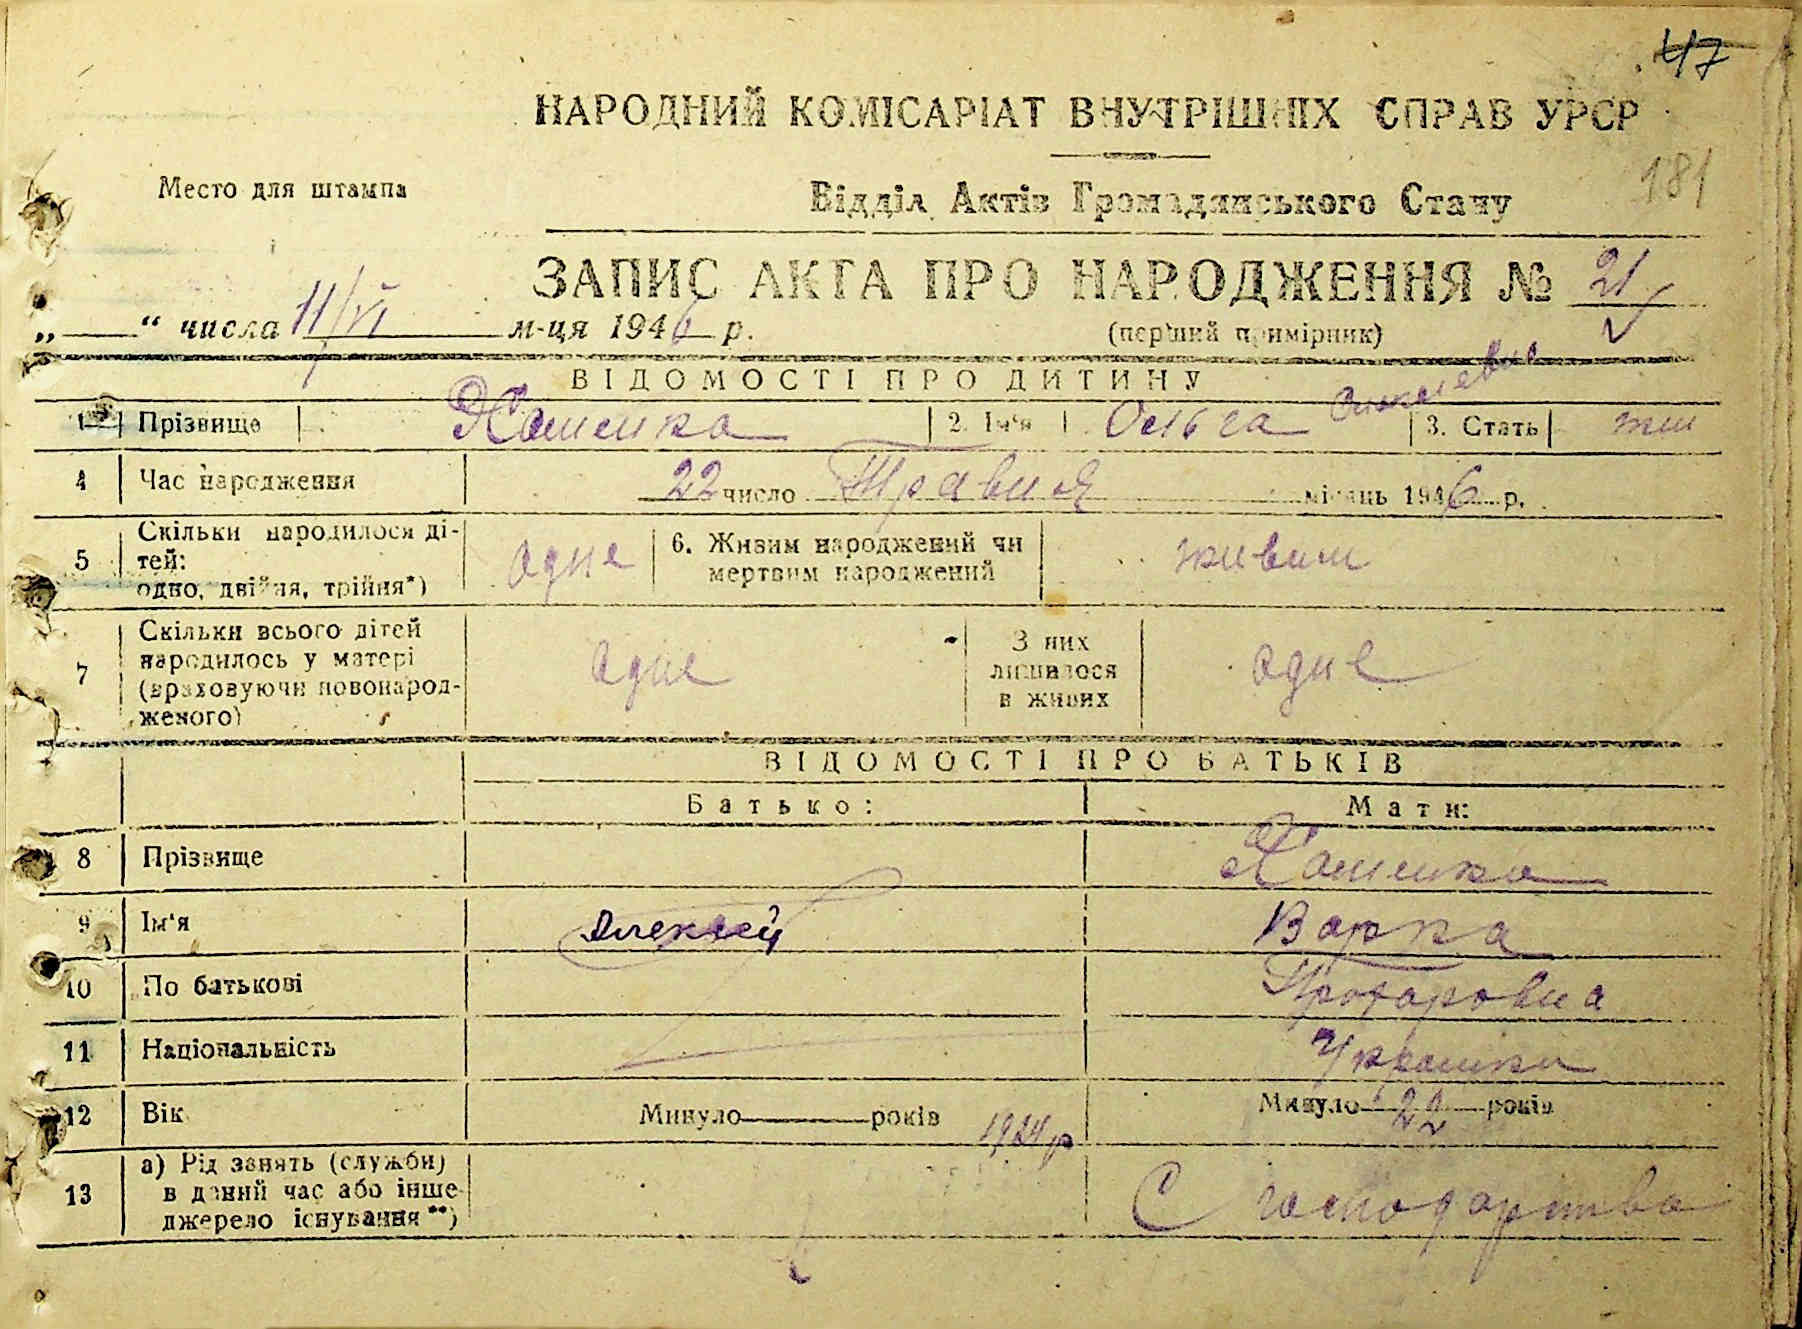 47
НАРОДНИЙ КОМІСАРІАТ ВНУТРІШНІХ СПРАВ УРСР
181
Место для штампа
Відділ Актів Громадянського Стану
ЗАПИС АКТА ПРО НАРОДЖЕННЯ № 21
„ “ числа 11/VI м-ця 1946 р.
(перший примірник)
ВІДОМОСТІ ПРО ДИТИНУ
1 Прізвище 2. Ім'я Ольга 3. Стать жін
4 Час народження 22 число Травня місяць 1946 р.
5 Скільки народилося ді-
тей:
одно, двійня, трійня*) одне
6. Живим народжений чи
мертвим народжений живим
7 Скільки всього дітей
народилось у матері
(враховуючи новонарод-
женого) одне
З них
лишилося
в живих одне
ВІДОМОСТІ ПРО БАТЬКІВ
Батько: Мати:
8 Прізвище
9 Ім'я Алексей Варка
10 По батькові
11 Національність Українка
12 Вік Минуло років 1924 р Минуло 22 років
13 а) Рід занять (служби)
в даний час або інше
джерело існування**) С господарства